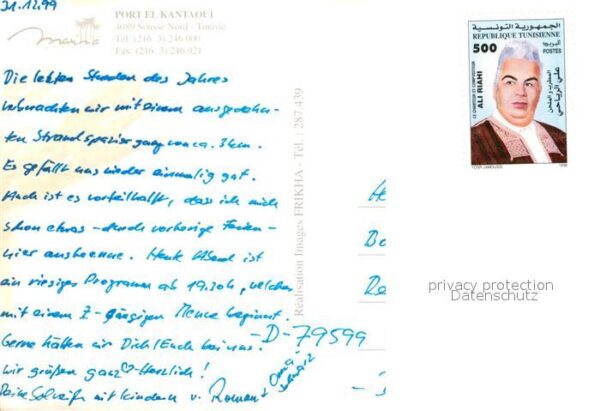 31.12.99
marina
PORT EL KANTAOUI
4089 Sousse Nord - Tunisie
Tél (216 3) 246 900
Fax: (216 3) 246 921
Die letzten Stunden des Jahres
verbrachten wir mit einem ausgedehn-
ten Strandspaziergang von ca. 3 km.
Es gefällt uns wieder einmalig gut.
Auch ist es vorteilhaft, dass ich mich
schon etwas - durch vorherige Ferien -
hier auskenne. Heute Abend ist
ein riesiges Programm ab 19.30h, welches
mit einem 7-gängigen Menue beginnt.
Gerne hätten wir Dich/Euch bei uns.
Wir grüßen ganz herzlich!
Deine mit Kindern v. Roman +
Oma
Réalisation Images FRIKHA - Tél.: 287.439
-D-79599
الجمهورية التونسية
REPUBLIQUE TUNISIENNE
500
البريد
POSTES
LE CHANTEUR ET COMPOSITEUR
ALI RIAHI
المطرب والملحن
علي الرياحي
privacy protection
Datenschutz